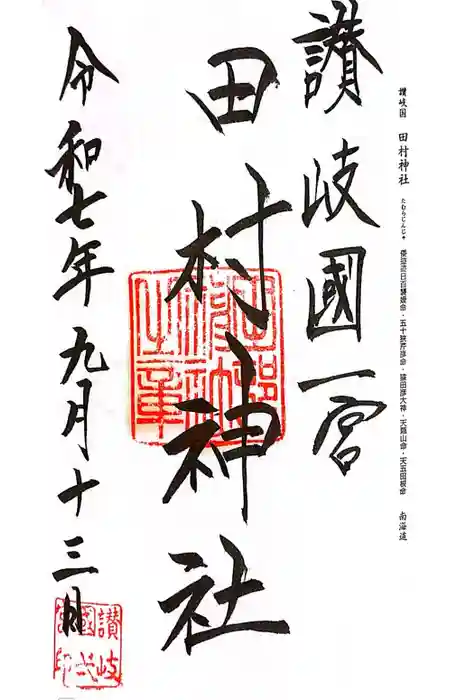 讃岐国 田村神社 たむらじんじゃ 倭迹迹日百襲姫命・五十狭芹彦命・猿田彦大神・天隠山命・天五田根命 南海道
讃岐國一宮
田村神社
令和七年九月十三日
田村神社之章
讃岐國弌宮印